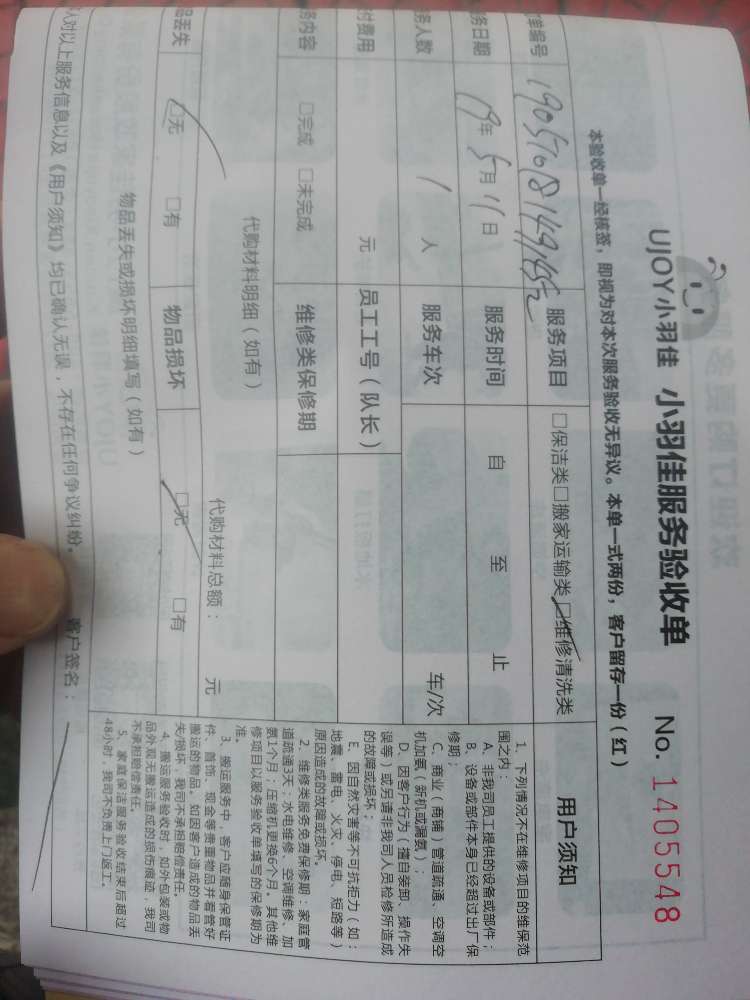 UJOY小羽佳 小羽佳服务验收单 No. 1405548
本验收单一经核签，即视为对本次服务验收无异议。本单一式两份，客户留存一份（红）
单编号 服务项目 □保洁类□搬家运输类□维修清洗类
务日期 19年5月11日 服务时间 自 至 止
务人数 1 人 服务车次 车/次
付费用 元 员工工号（队长）
务内容 □完成 □未完成 维修类保修期
代购材料明细（如有） 代购材料总额： 元
品丢失 □无 □有 物品损坏 □无 □有
物品丢失或损坏明细填写（如有）
人对以上服务信息以及《用户须知》均已确认无误，不存在任何争议纠纷。 客户签名：
用户须知
1、下列情况不在维修项目的维保范
围之内：
A、非我司员工提供的设备或部件；
B、设备或部件本身已经超过出厂保
修期；
C、商业（商铺）管道疏通、空调空
机加氨（新机或漏氨）；
D、因客户行为（擅自装卸、操作失
误等）或另请非我司人员检修所造成
的故障或损坏；
E、因自然灾害等不可抗拒力（如：
地震、雷电、火灾、停电、短路等）
原因造成的故障或损坏。
2、维修类服务免费保修期：家庭管
道疏通3天；水电维修、空调维修、加
氨1个月；压缩机更换6个月。其他维
修项目以服务验收单填写的保修期为
准。
3、搬运服务中，客户应随身保管证
件、首饰、现金等贵重物品并看管好
搬运的物品。如因客户造成的物品丢
失/损坏，我司不承担赔偿责任。
4、搬运服务验收时，如外包装或物
品外观无搬运造成的损伤痕迹，我司
不承担赔偿责任。
5、家庭保洁服务验收结束后超过
48小时，我司不负责上门返工。